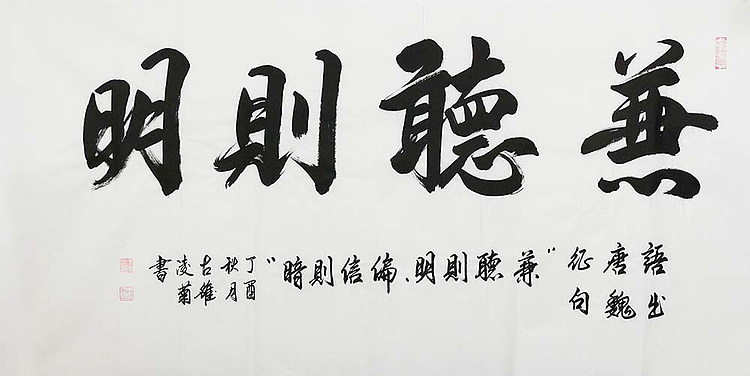 兼聽則明
語出
唐魏
征句
“兼聽則明、偏信則暗”
丁酉
秋月
古雍
凌菊
書